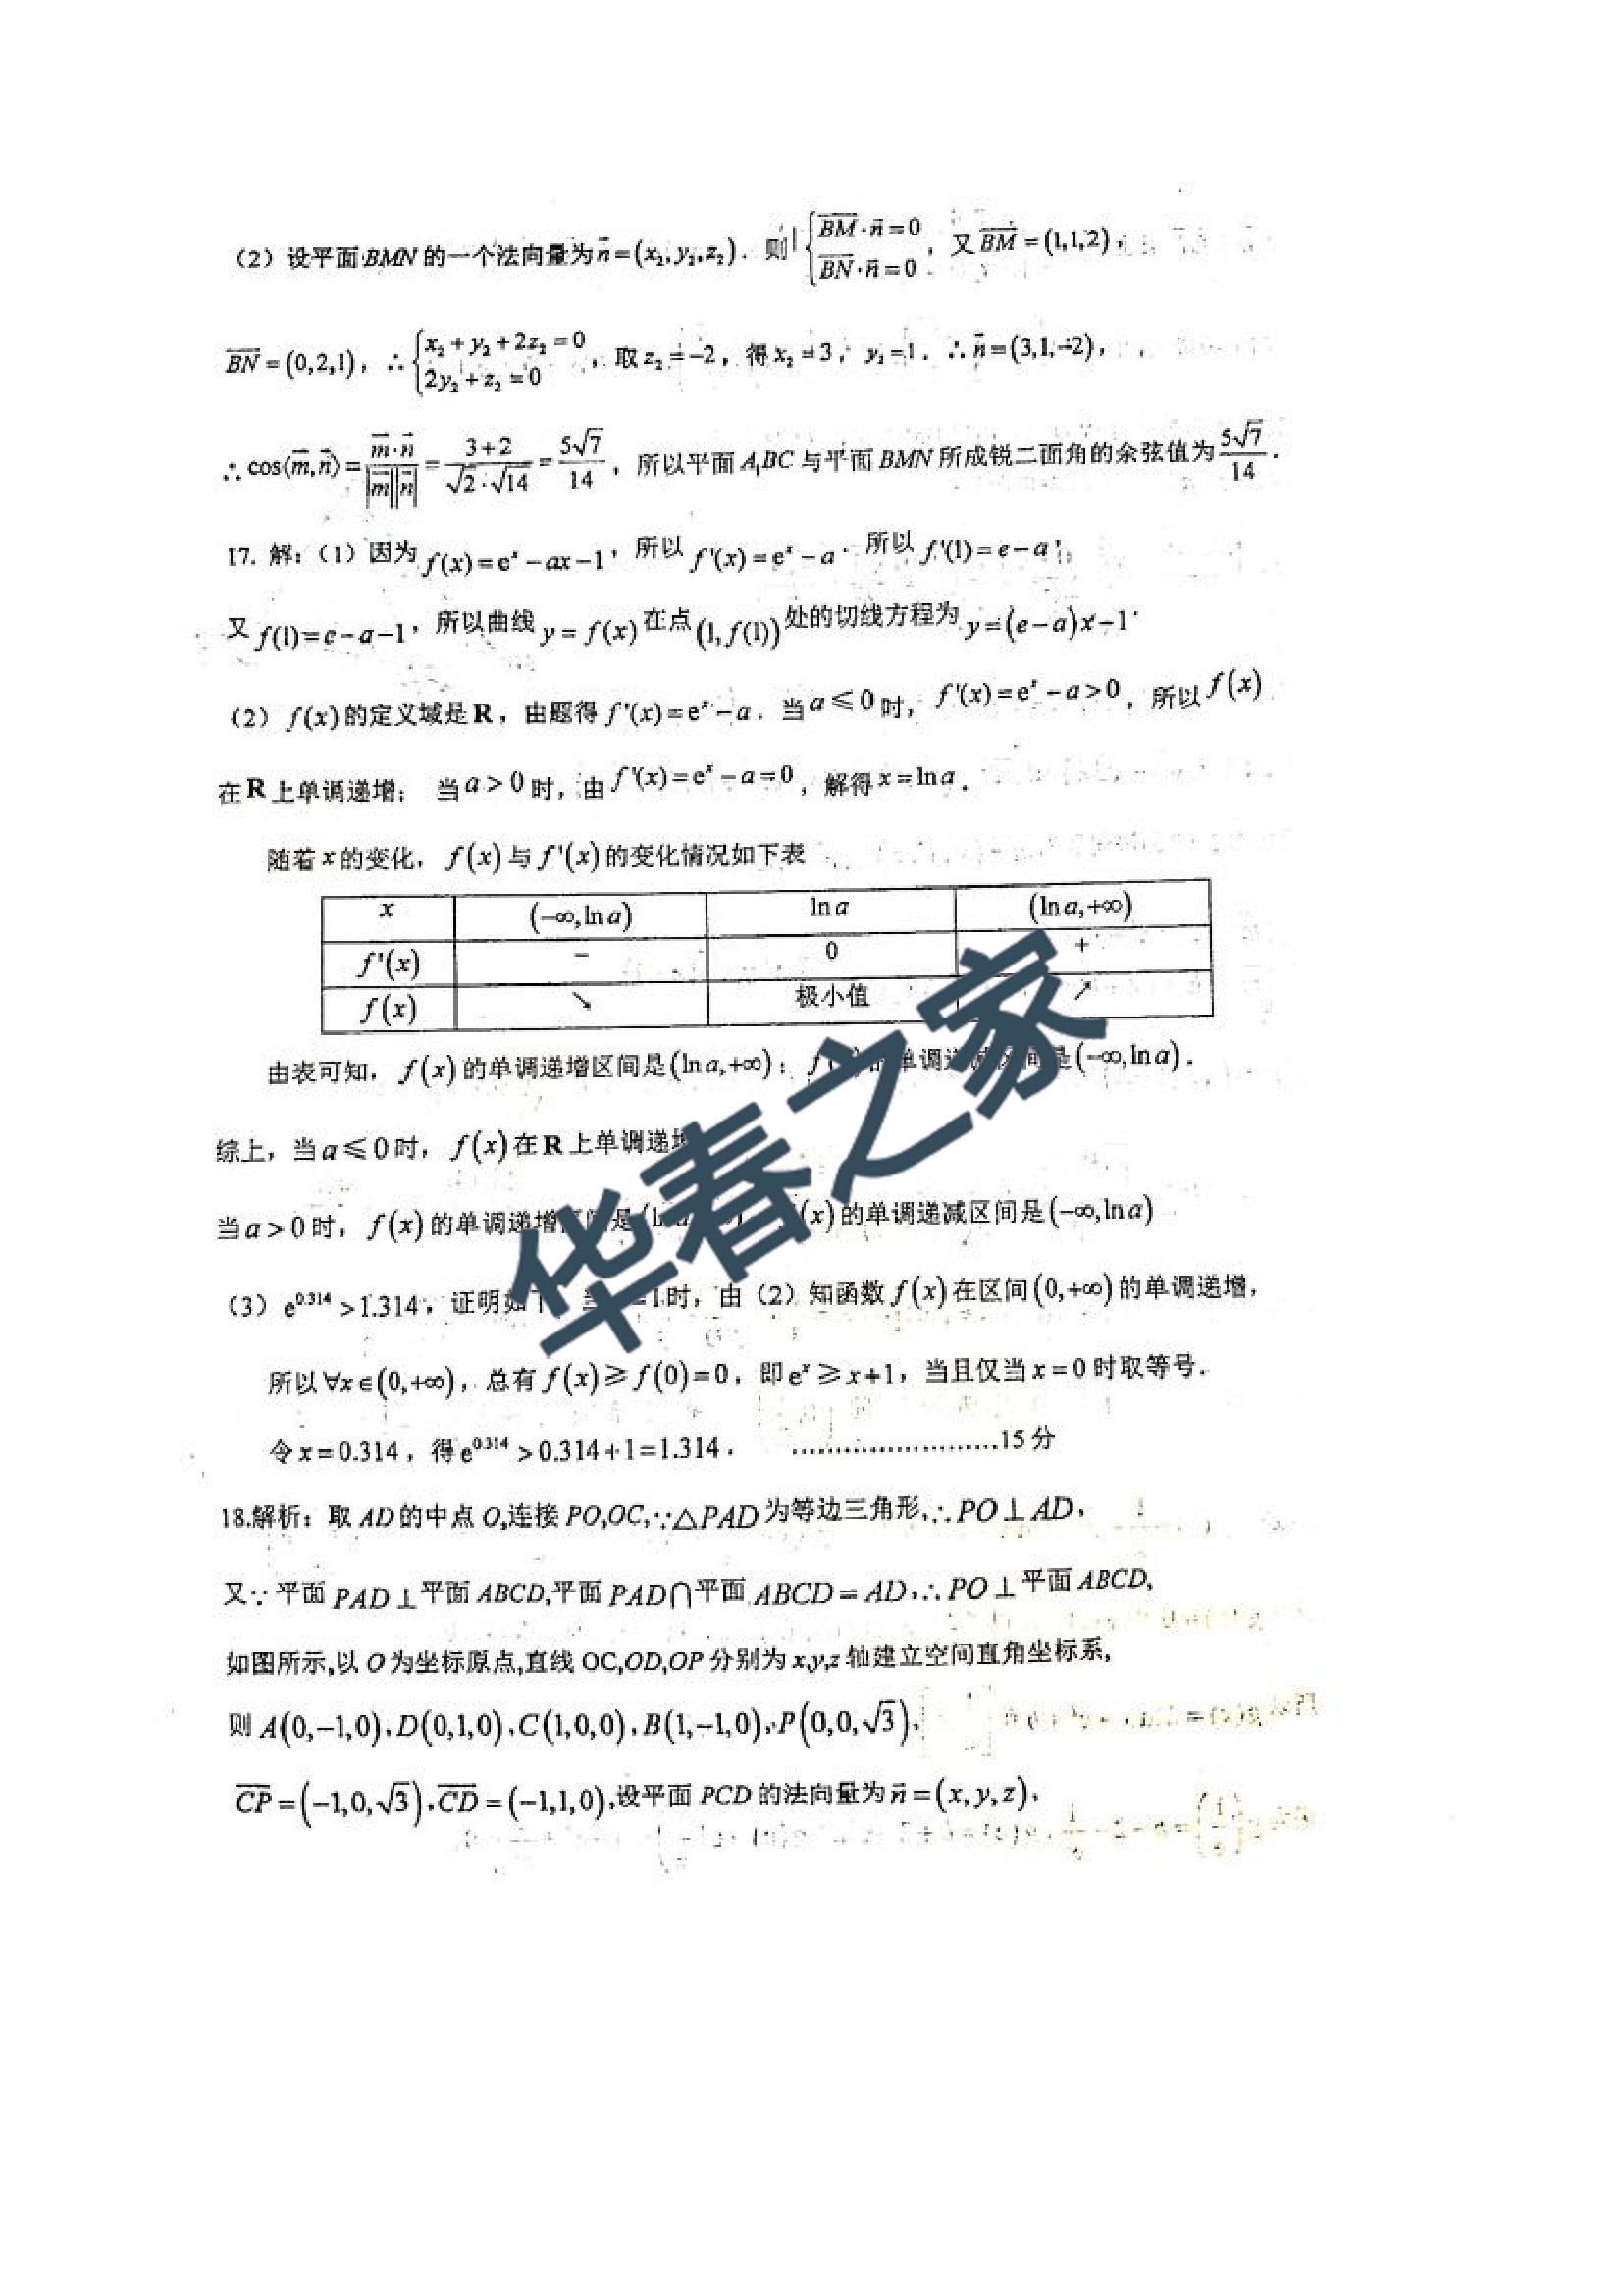 （2）设平面BMN的一个法向量为n⃗=(x₂,y₂,z₂)．则{BM⃗·n⃗=0 BN⃗·n⃗=0，又BM⃗=(1,1,2)，
BN⃗=(0,2,1)，∴{x₂+y₂+2z₂=0 2y₂+z₂=0，取z₂=-2，得x₂=3，y₂=1．∴n⃗=(3,1,-2)，
∴cos⟨m⃗,n⃗⟩=m⃗·n⃗/|m⃗||n⃗|=(3+2)/(√2·√14)=5√7/14，所以平面A₁BC与平面BMN所成锐二面角的余弦值为5√7/14．
17. 解：（1）因为f(x)=eˣ-ax-1，所以f'(x)=eˣ-a．所以f'(1)=e-a，
又f(1)=e-a-1，所以曲线y=f(x)在点(1,f(1))处的切线方程为y=(e-a)x-1．
（2）f(x)的定义域是R，由题得f'(x)=eˣ-a．当a≤0时，f'(x)=eˣ-a>0，所以f(x)
在R上单调递增； 当a>0时，由f'(x)=eˣ-a=0，解得x=lna．
随着x的变化，f(x)与f'(x)的变化情况如下表
x (-∞,lna) lna (lna,+∞)
f'(x) - 0 +
f(x) ↘ 极小值 ↗
由表可知，f(x)的单调递增区间是(lna,+∞)；f 单调 是(-∞,lna)．
综上，当a≤0时，f(x)在R上单调递
当a>0时，f(x)的单调递增 是 (x)的单调递减区间是(-∞,lna)
（3）e^0.314>1.314，证明如 1时，由（2）知函数f(x)在区间(0,+∞)的单调递增，
所以∀x∈(0,+∞)，总有f(x)≥f(0)=0，即eˣ≥x+1，当且仅当x=0时取等号．
令x=0.314，得e^0.314>0.314+1=1.314． ........................15分
18.解析：取AD的中点O,连接PO,OC,∵△PAD为等边三角形,∴PO⊥AD，
又∵平面PAD⊥平面ABCD,平面PAD∩平面ABCD=AD,∴PO⊥平面ABCD,
如图所示,以O为坐标原点,直线OC,OD,OP分别为x,y,z轴建立空间直角坐标系,
则A(0,-1,0),D(0,1,0),C(1,0,0),B(1,-1,0),P(0,0,√3),
CP⃗=(-1,0,√3),CD⃗=(-1,1,0),设平面PCD的法向量为n⃗=(x,y,z)，
华春之家